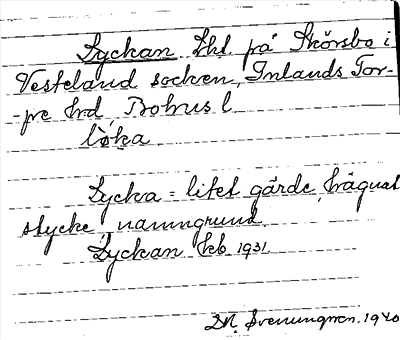 Lyckan Lht. på Skörsbo i
Vesteland socken, Inlands Tor-
-pe hrd, Bohus l.
löka
Lycka = litet gärde, hägnat
stycke, namngrund.
Lyckan kb. 1931.
D.N. Svenungsson. 1940